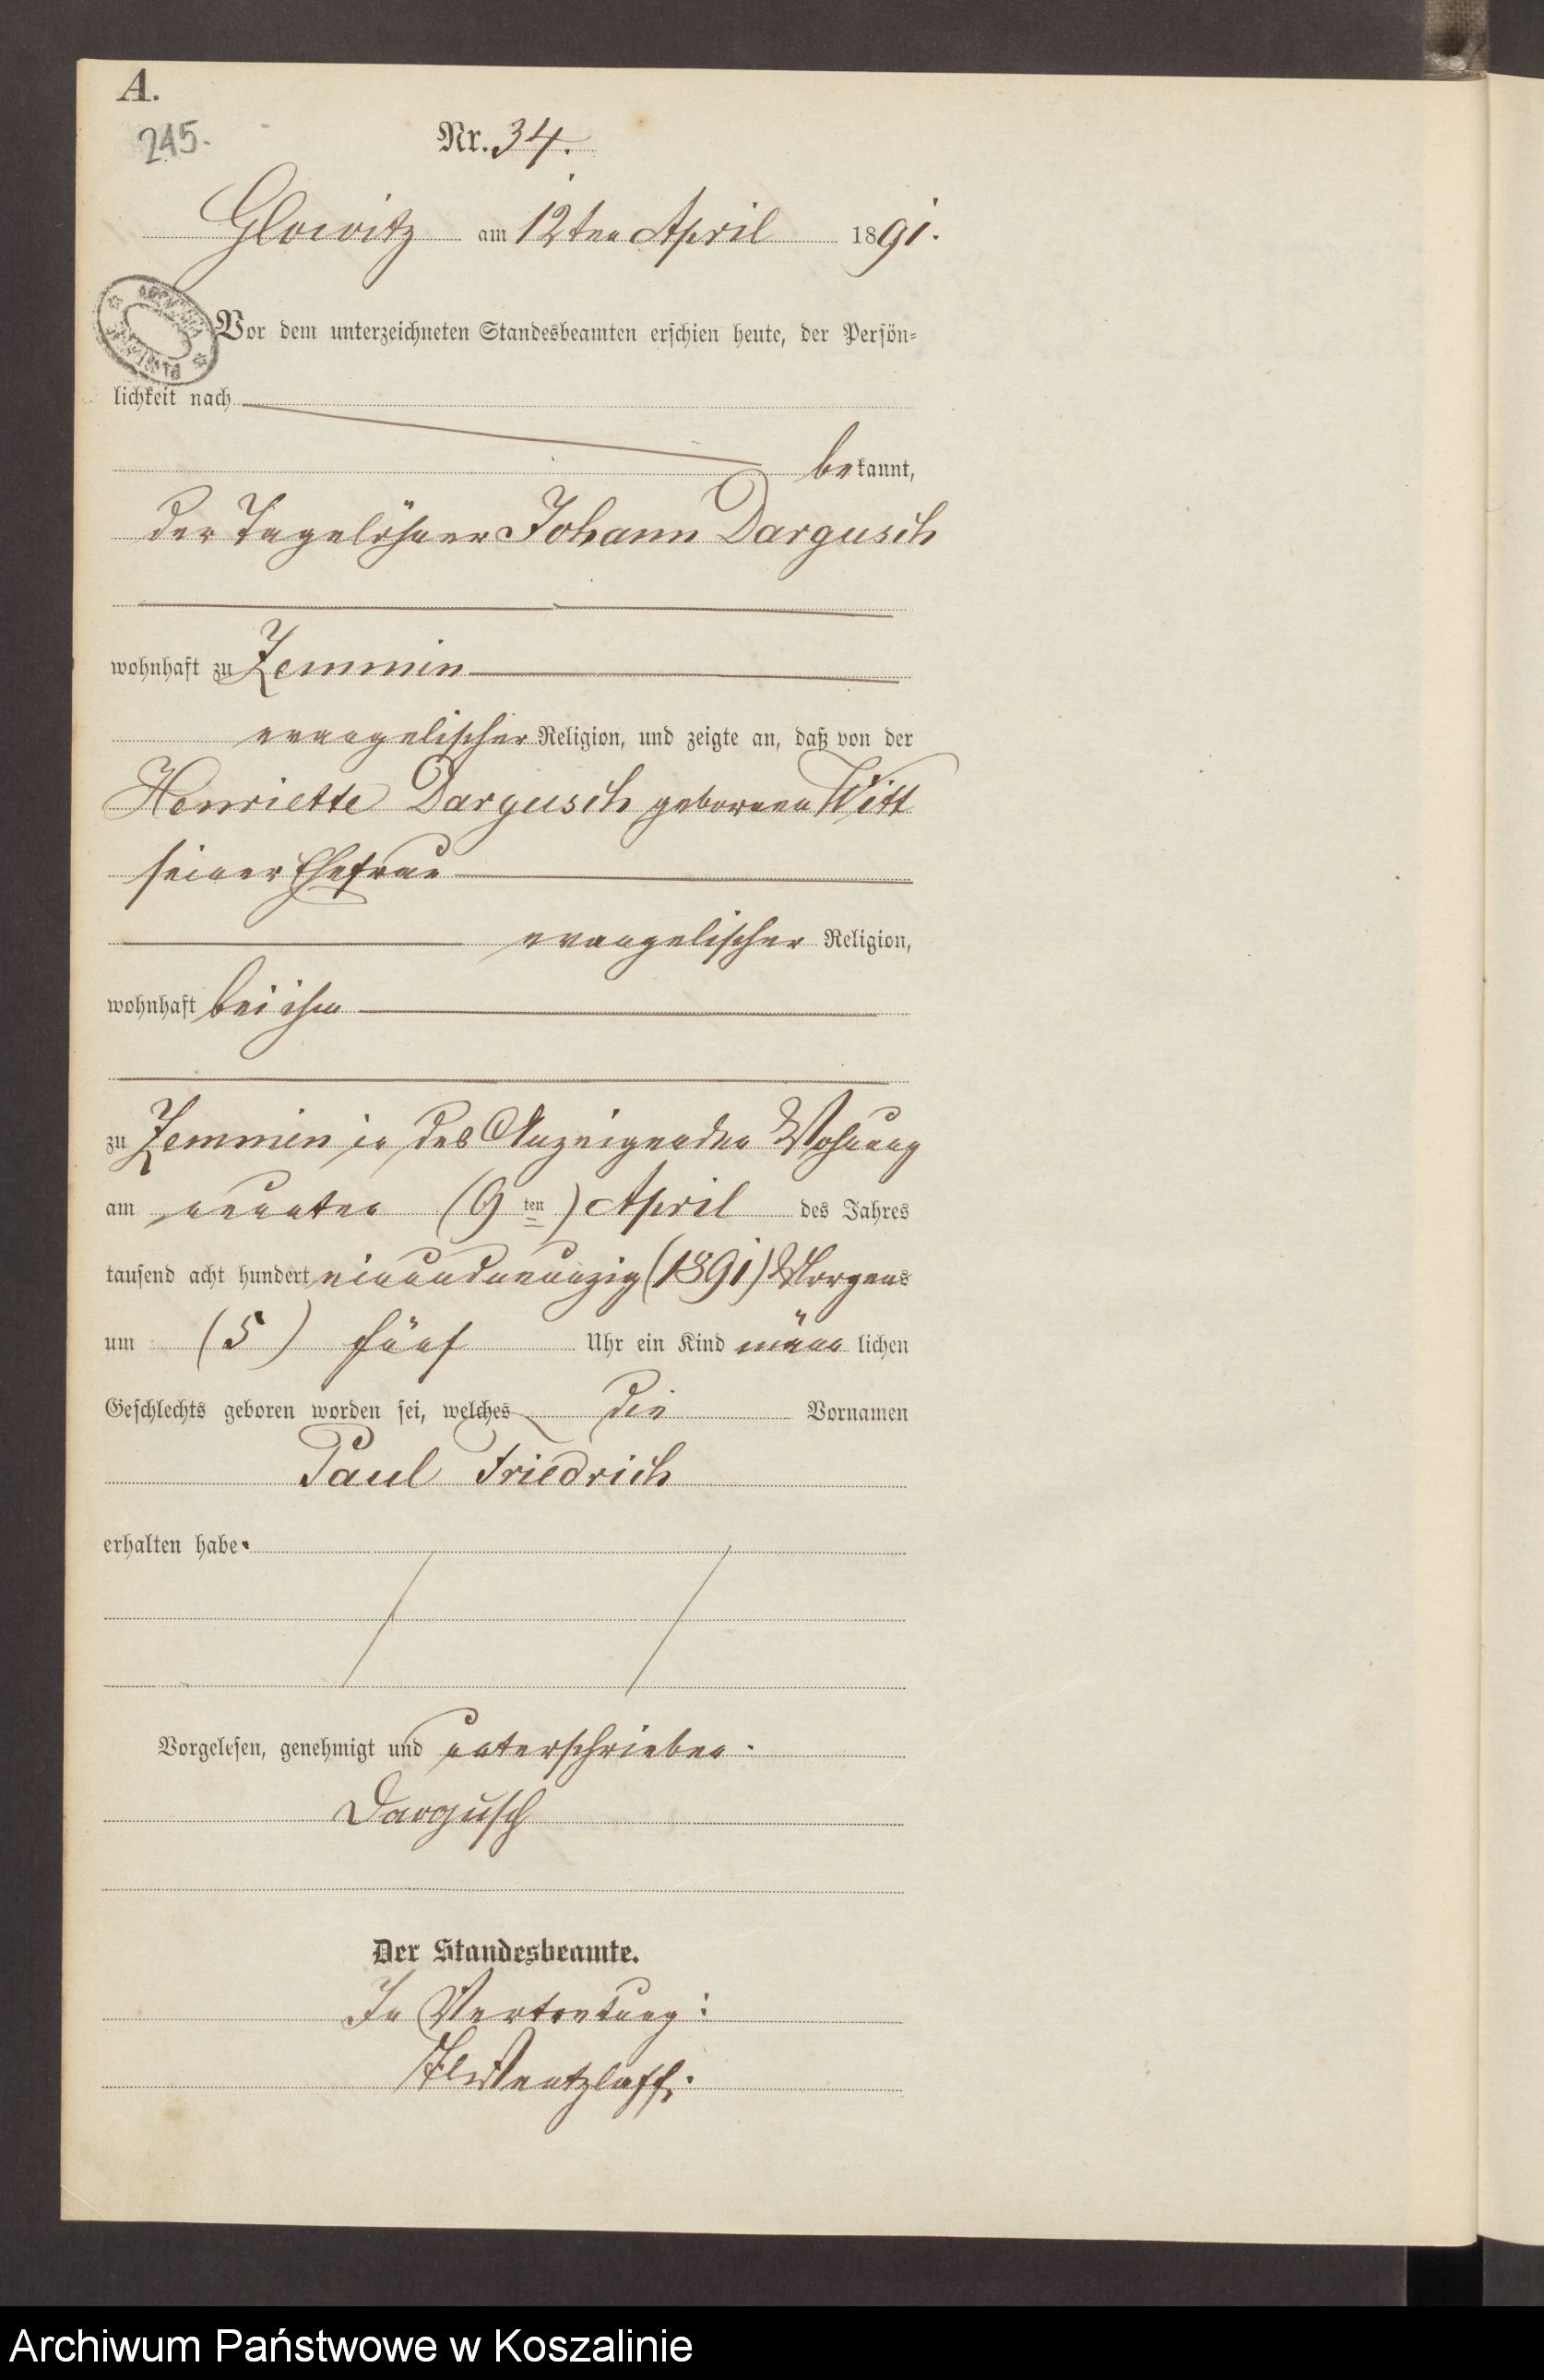 A.
245.
Nr. 34.
Glowitz am 12ten April 1891.
Vor dem unterzeichneten Standesbeamten erschien heute, der Persön=
lichkeit nach
bekannt,
der Tagelöhner Johann Dargusch
wohnhaft zu Zemmin
evangelischer Religion, und zeigte an, daß von der
Henriette Dargusch geborenen Witt
seiner Ehefrau
evangelischer Religion,
wohnhaft bei ihm
zu Zemmin in des Anzeigenden Wohnung
am neunten (9ten) April des Jahres
tausend acht hundert einundneunzig (1891) Morgens
um (5) fünf Uhr ein Kind männlichen
Geschlechts geboren worden sei, welches die Vornamen
Paul Friedrich
erhalten habe.
Vorgelesen, genehmigt und unterschrieben.
Dargusch
Der Standesbeamte.
In Vertretung:
Wentzlaff.
Archiwum Państwowe w Koszalinie